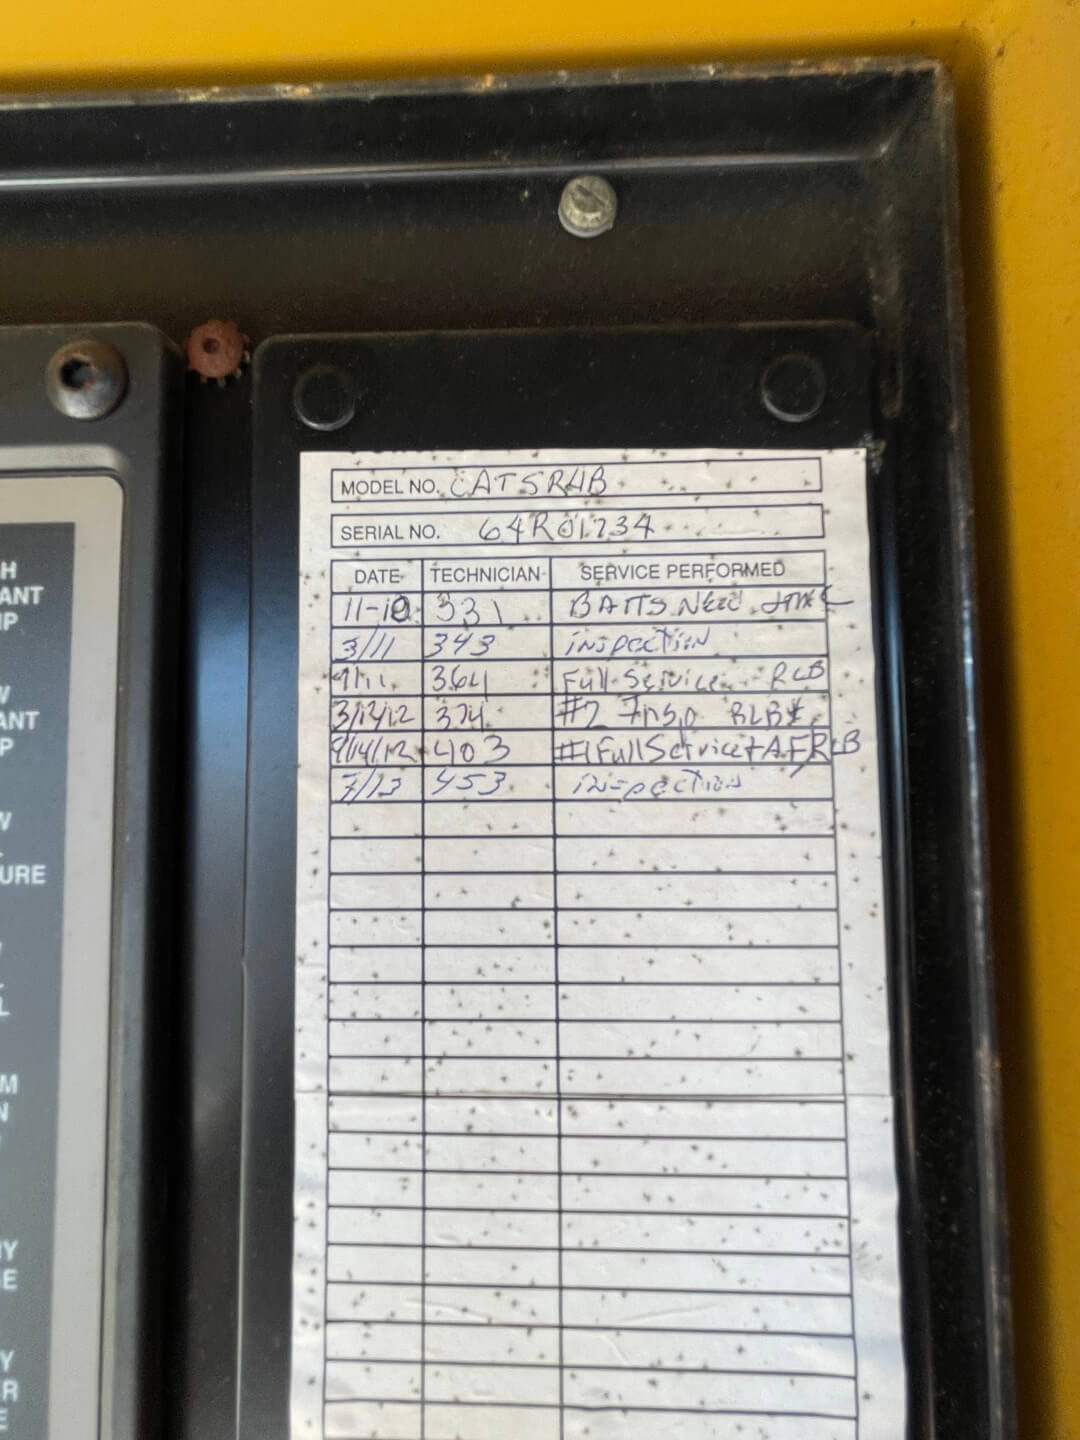 H
ANT
IP
W
ANT
P
W
URE
L
M
N
Y
E
Y
R
E
MODEL NO. CAT SR4B
SERIAL NO. 64R01734
DATE TECHNICIAN SERVICE PERFORMED
11-10 331 BATTS Need
3/11 343 inspection
9/11 364 Full Service RLB
3/12/12 374 #2 Insp RLB
9/14/12 403 #1 Full Service + AF RLB
7/13 453 inspection